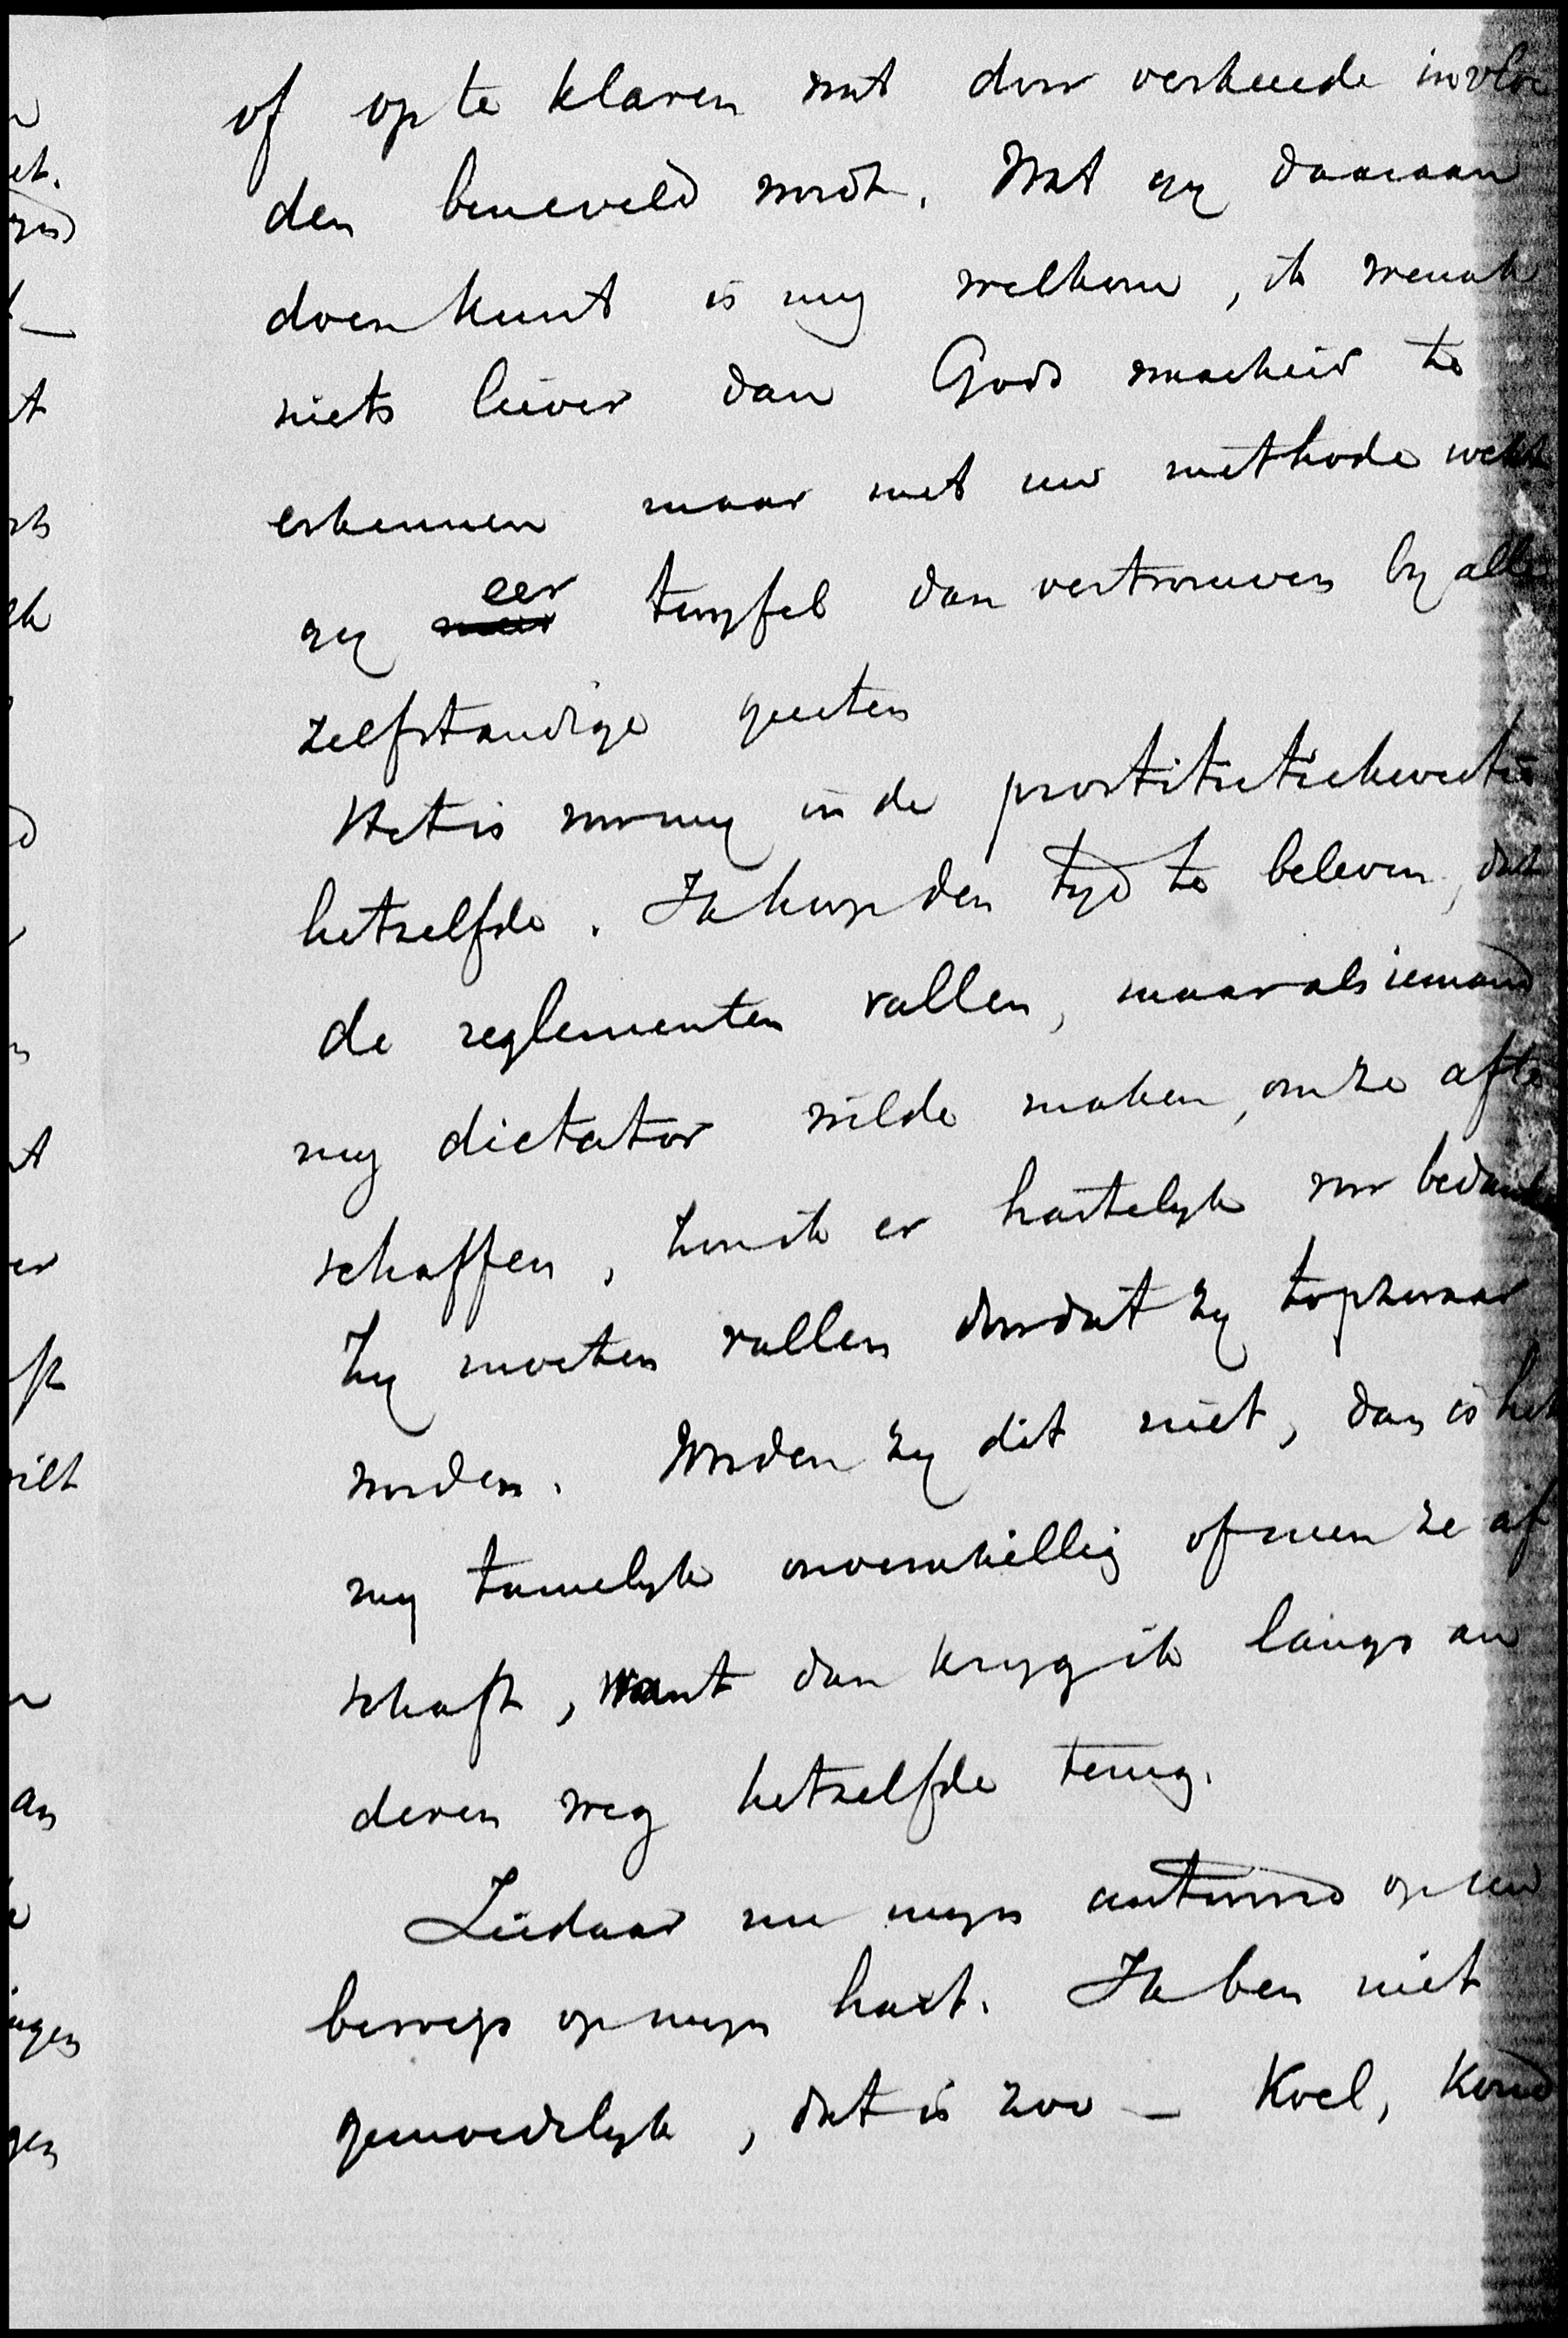 of op te klaren wat door verkeerde invloe
den beneveld wordt. Wat gy daaraan
doen kunt is my welkom, ik wensch
niets liever dan Gods waarheid te
erkennen maar met uw methode wekt
gy eer twyfel dan vertrouwen by alle
zelfstandige geesten
Het is voor my in de prostitutiekwestie
hetzelfde. Ik hoop den tyd te beleven, dat
de reglementen vallen, maar als iemand
my dictator wilde maken, om ze af te
schaffen, zou ik er hartelyk voor bedank
Zy moeten vallen doordat zy topzwaar
worden. Worden zy dit niet, dan is het
my tamelyk onverschillig of men ze af
schaft, want dan kryg ik langs an
deren weg hetzelfde terug.
Ziedaar nu myn antwoord op uw
beroep op myn hart. Ik ben niet
gemoedelyk, dat is zoo — Koel, Koud